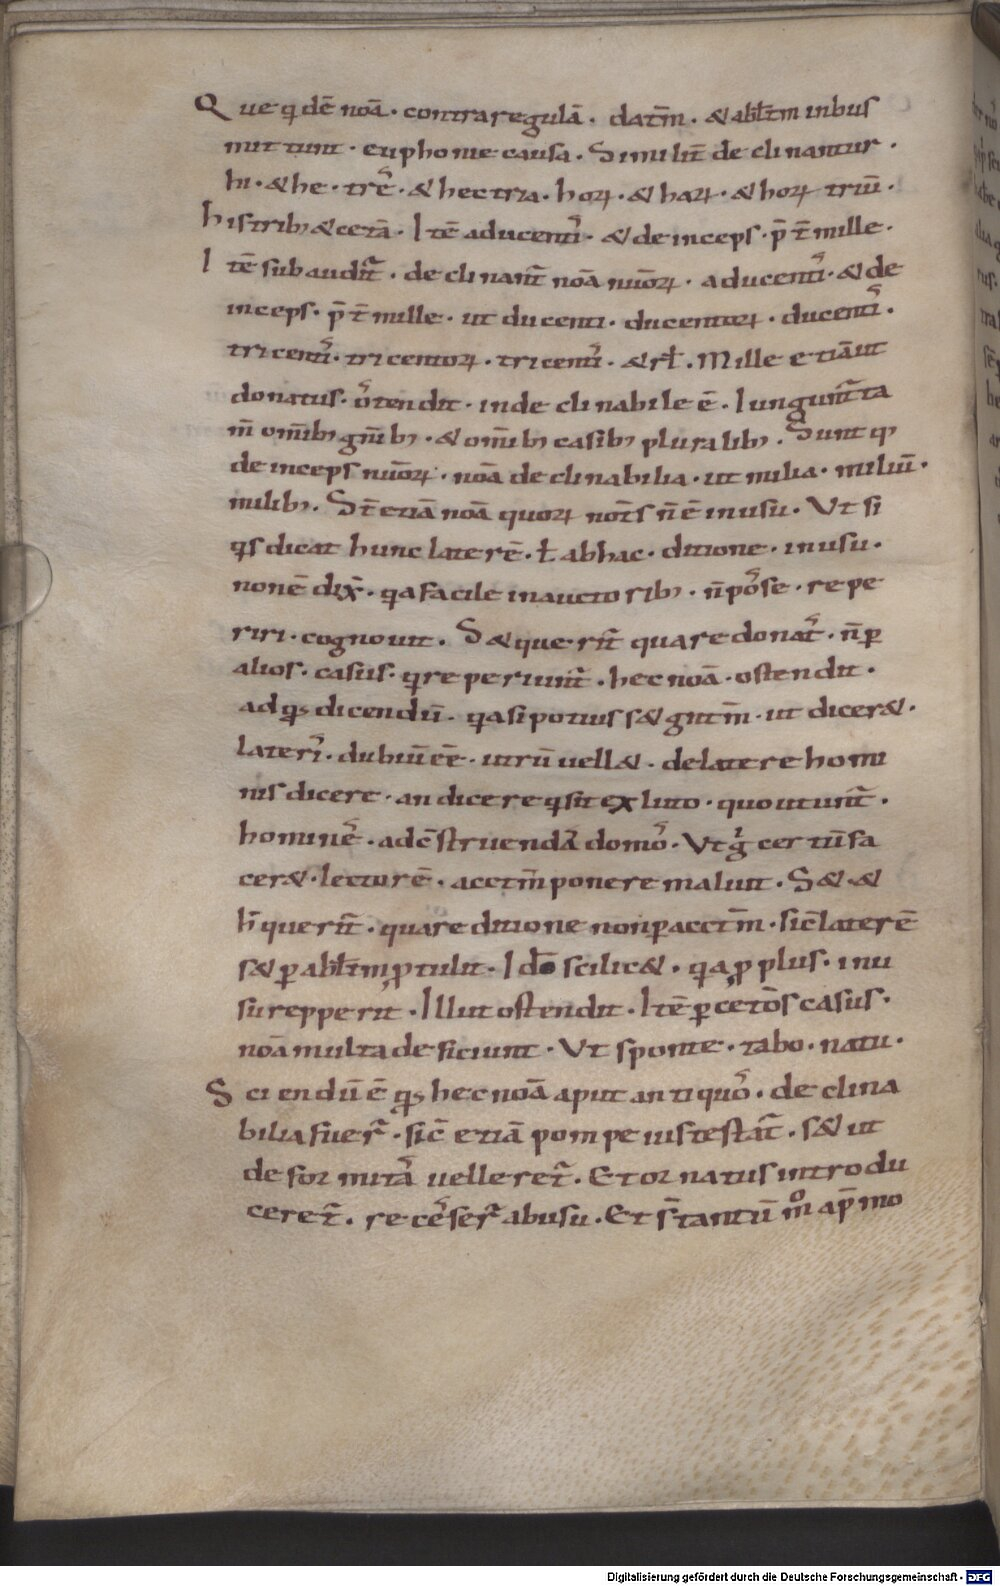 Que q̄dē noā· contra regulā· datm̄· & ablt̄m inbus
mittunt· euphonie causa· Similit̄ declinantur·
hi· & he· tre᷒· & hec tria· hoꝝ· & haꝝ· & hoꝝ triū·
histribꝫ & cetā· Itē aducenti᷒· & deinceps· p̄ t̄ mille·
Itē subaudit̄· declinant̄ noā nūoꝝ· aducenti᷒· & de
inceps· p̄ t̄ mille· ut ducenti· ducentoꝝ· ducenti᷒·
tricenti᷒· tricentoꝝ· tricenti᷒· & rł· Mille etiā ut
donatus· o᷒tendit· indeclinabile ē· Iungunt̄ ta
m̄ om̄ibꝫ gn̄ibꝫ· & om̄ibꝫ casibꝫ pluralibꝫ· Sunt qꝫ
deinceps nūoꝝ· noā declinabilia· ut milia· miliū·
milibꝫ· St̄ etiā noā quoꝝ not̄s n̄ ē inusu· Ut si
qs dicat hunc laterē· ł abhac· ditione· inusu·
non ē dix̄· qa facile in auctoribꝫ· n̄ po᷒se· repe
riri· cognouit· S& querit̄ quare donat᷒· n̄ ꝑ
alios· casus· q reperiunt̄· hec noā· ostendit·
ad qđ dicendū· qa si potius s& gitm̄· ut dicer&·
lateri᷒· dubiū ēē· utrū uell&· delatere homi
nis dicere· an dicere qsit ex luto· quo utunt̄·
homine᷒· ad c̄struenda᷒ domo᷒· Ut g̊ certū fa
cer&· lectorē· acctm̄ ponere maluit· S& &
h̄ querit̄· quare ditione non ꝑ acctm̄· sic̄ laterē
s& ꝑ ablt̄m ꝓtulit· Idō scilic&· qa ꝓ plus· inu
su repperit· Illut ostendit· Itē ꝑ cetōs casus·
noā multa deficiunt· Ut sponte· tabo· natu·
Sciendū ē qđ hec noā aput antiquo᷒· declina
bilia fuer̄· sic̄ etiā pompeius testat̄· s& ut
deformita᷒ uelleret̄· Et ornatus introdu
ceret̄· rece᷒ser̄ abusu· Et s̄ tantū m̊ ap̄ mo
Digitalisierung gefördert durch die Deutsche Forschungsgemeinschaft - DFG